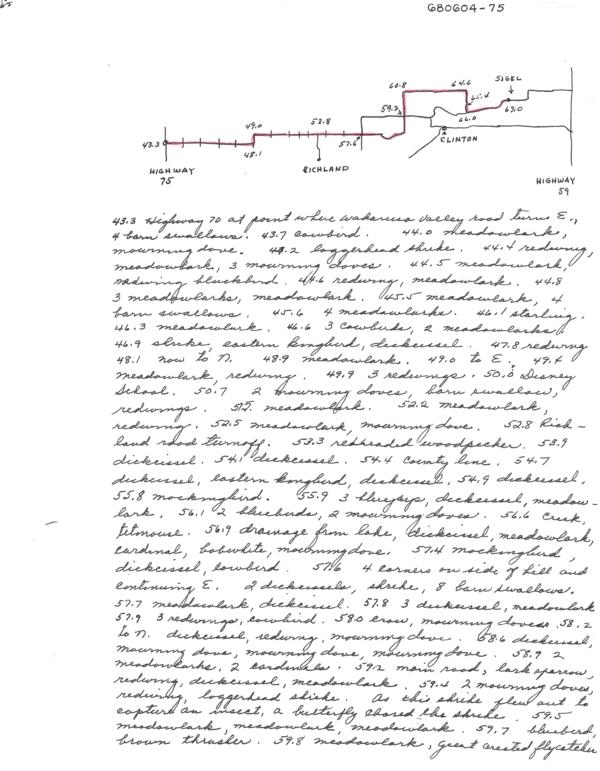 680604-75
SIGEL
60.8
64.6
65.4
69.0
59.2
66.0
CLINTON
49.0
52.8
43.3
48.1
57.6
HIGHWAY
75
RICHLAND
HIGHWAY
59
43.3 Highway 70 at point where Wakarusa Valley road turns E.,
4 barn swallows. 43.7 cowbird. 44.0 meadowlark,
mourning dove. 44.2 loggerhead shrike. 44.4 redwing,
meadowlark, 3 mourning doves. 44.5 meadowlark,
redwing blackbird. 44.6 redwing, meadowlark. 44.8
3 meadowlarks, meadowlark. 45.5 meadowlark, 4
barn swallows. 45.6 4 meadowlarks. 46.1 starling.
46.3 meadowlark. 46.6 3 cowbirds, 2 meadowlarks.
46.9 shrike, eastern kingbird, dickcissel. 47.8 redwing
48.1 now to N. 48.9 meadowlark. 49.0 to E. 49.4
meadowlark, redwing. 49.9 3 redwings. 50.0 Disney
School. 50.7 2 mourning doves, barn swallow,
redwings. meadowlark. 52.2 meadowlark,
redwing. 52.5 meadowlark, mourning dove. 52.8 Rich-
land road turnoff. 53.3 redheaded woodpecker. 53.9
dickcissel. 54.1 dickcissel. 54.4 County line. 54.7
dickcissel, eastern kingbird, dickcissel. 54.9 dickcissel.
55.8 mockingbird. 55.9 3 bluejays, dickcissel, meadow-
lark. 56.1 2 bluebirds, 2 mourning doves. 56.6 Creek,
titmouse. 56.9 drainage from lake, dickcissel, meadowlark,
cardinal, bobwhite, mourning dove. 57.4 mockingbird,
dickcissel, cowbird. 57.6 4 corners on side of hill and
continuing E. 2 dickcissels, shrike, 8 barn swallows.
57.7 meadowlark, dickcissel. 57.8 3 dickcissel, meadowlark
57.9 3 redwings, cowbird. 58.0 crow, mourning doves. 58.2
to N. dickcissel, redwing, mourning dove. 58.6 dickcissel,
mourning dove, mourning dove, mourning dove. 58.9 2
meadowlarks, 2 cardinals. 59.2 main road, lark sparrow,
redwing, dickcissel, meadowlark. 59.4 2 mourning doves,
redwing, loggerhead shrike. As this shrike flew out to
capture an insect, a butterfly chased the shrike. 59.5
meadowlark, meadowlark, meadowlark. 59.7 bluebird,
brown thrasher. 59.8 meadowlark, great crested flycatcher